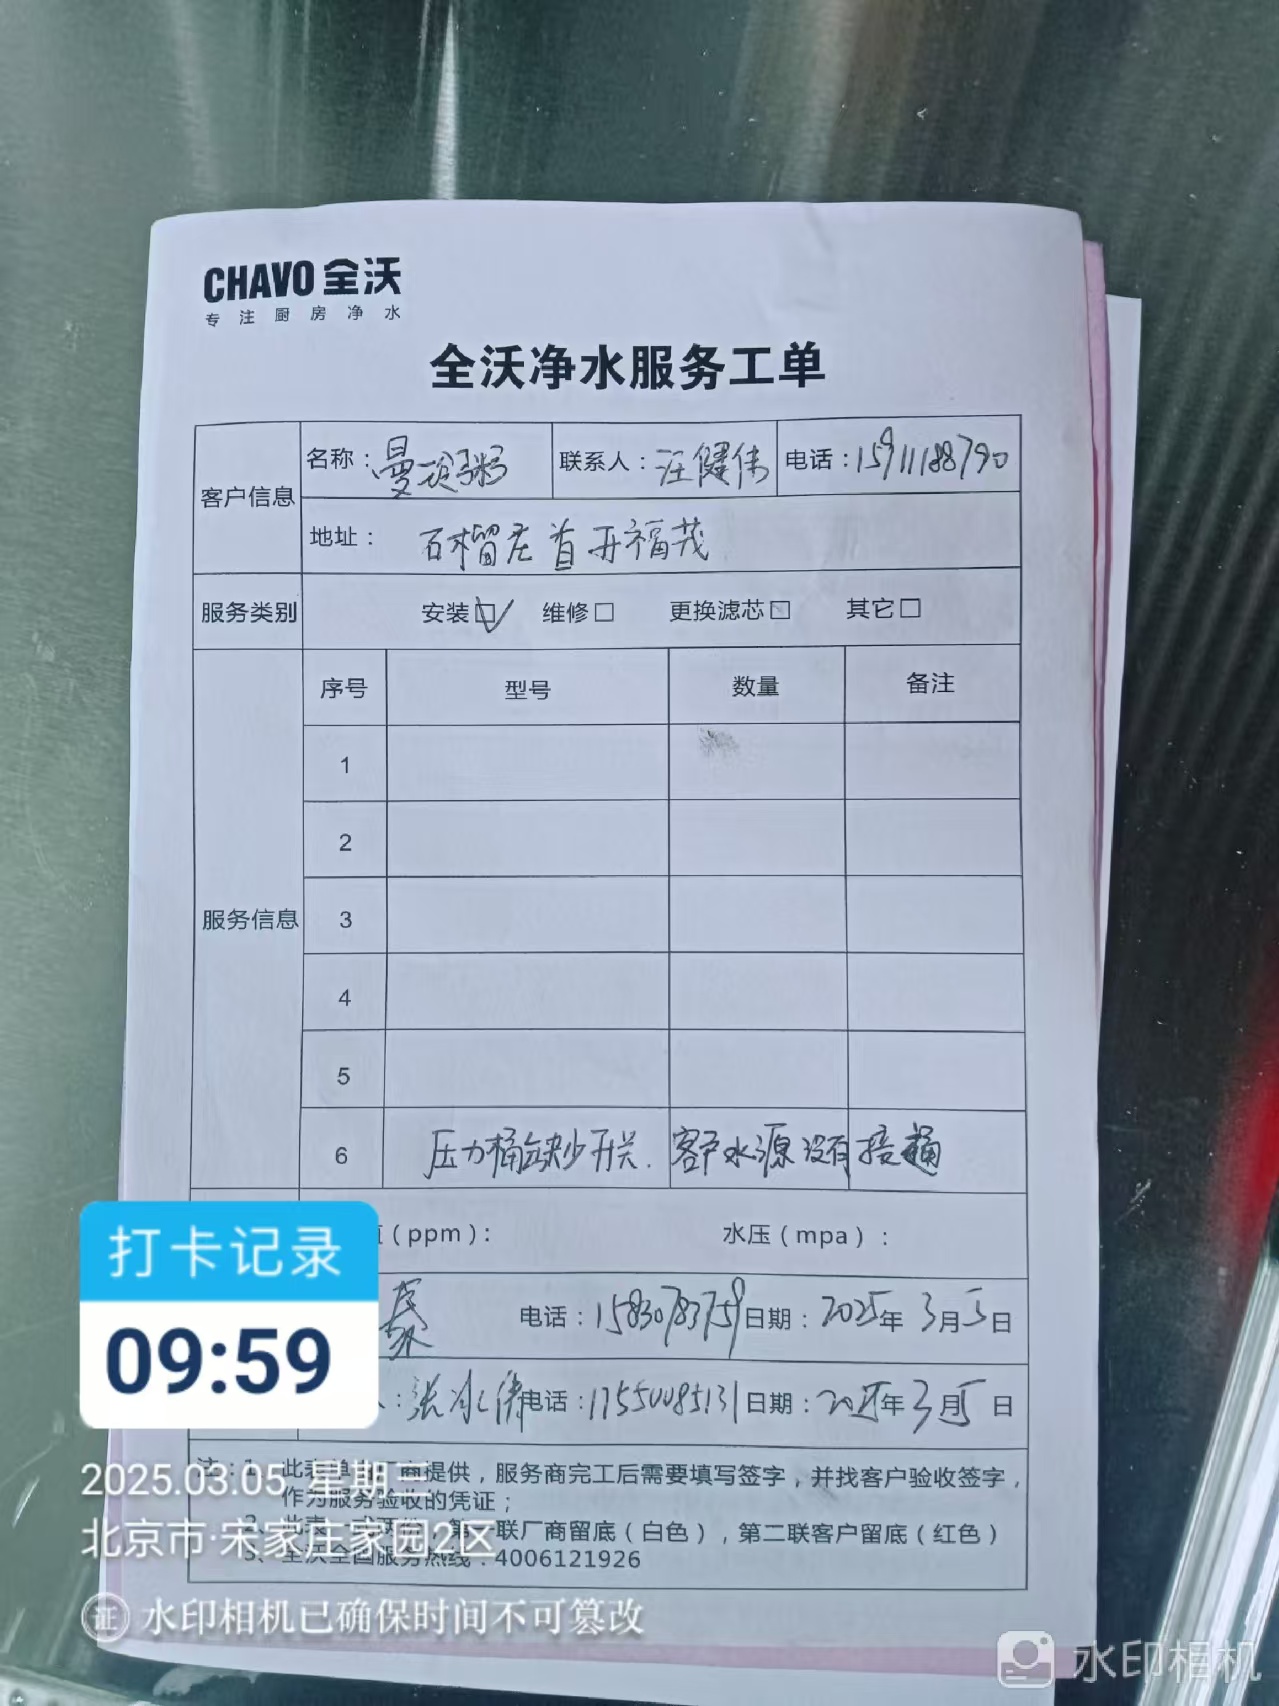 CHAVO 全沃
专注厨房净水
全沃净水服务工单
客户信息
名称：曼玲粥
联系人：汪健伟
电话：15911188790
地址：石榴庄首开福茂
服务类别
安装☑ 维修□ 更换滤芯□ 其它□
服务信息
序号 型号 数量 备注
1
2
3
4
5
6 压力桶缺少开关. 客户水源没有接通
(ppm)： 水压(mpa)：
电话：15830783759 日期：2025年3月5日
电话：17550085131 日期：2025年3月5日
注：1、此表单 厂商提供，服务商完工后需要填写签字，并找客户验收签字，
作为服务验收的凭证；
联厂商留底(白色)，第二联客户留底(红色)
3、全沃全国服务热线：4006121926
打卡记录
09:59
2025.03.05 星期三
北京市·宋家庄家园2区
证 水印相机已确保时间不可篡改
水印相机